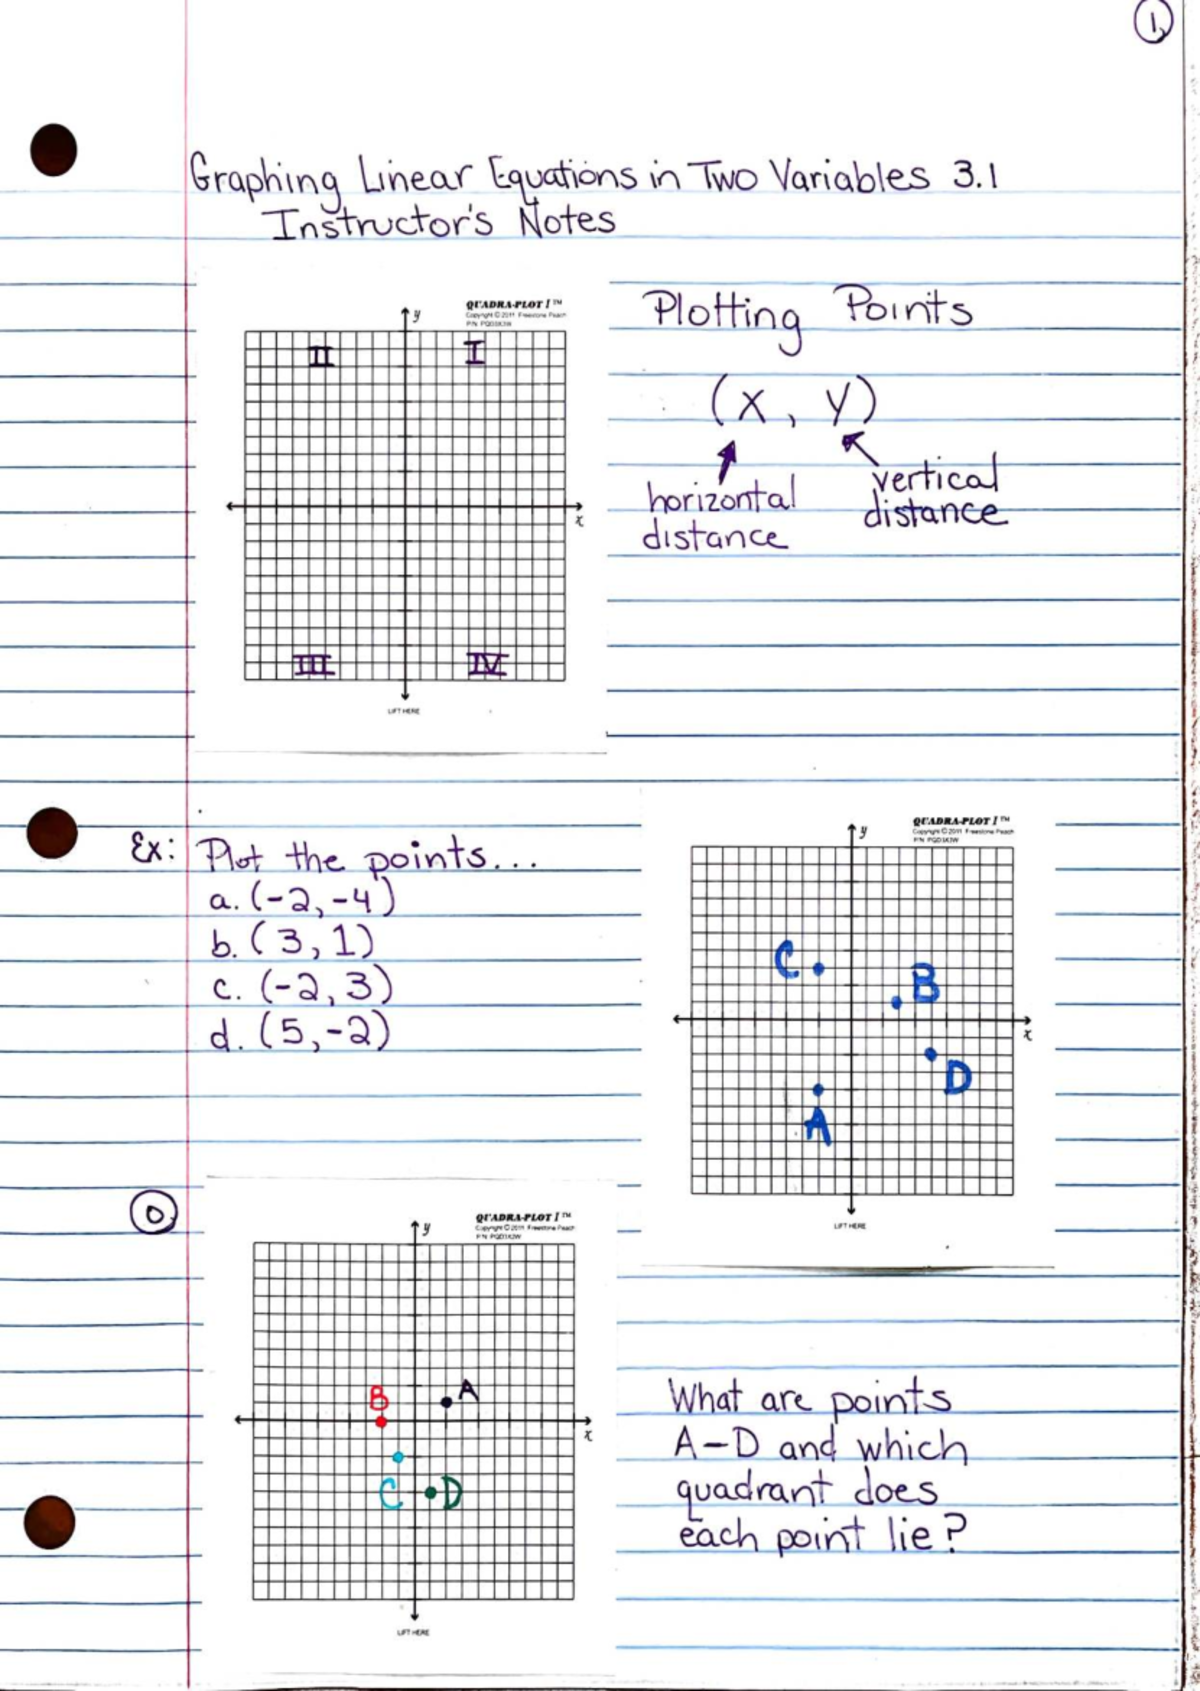 1
Graphing Linear Equations in Two Variables 3.1
Instructor's Notes
QUADRA-PLOT I™
Copyright © 2011 Freestone Peach
P/N
y
II
I
x
III
IV
LIFT HERE
Plotting Points
(x, y)
horizontal
distance
vertical
distance
Ex: Plot the points...
a. (-2,-4)
b. (3,1)
c. (-2,3)
d. (5,-2)
QUADRA-PLOT I™
Copyright © 2011 Freestone Peach
P/N
y
C
B
x
D
A
LIFT HERE
QUADRA-PLOT I™
Copyright © 2011 Freestone Peach
P/N
y
B
A
x
C
D
LIFT HERE
What are points
A-D and which
quadrant does
each point lie?